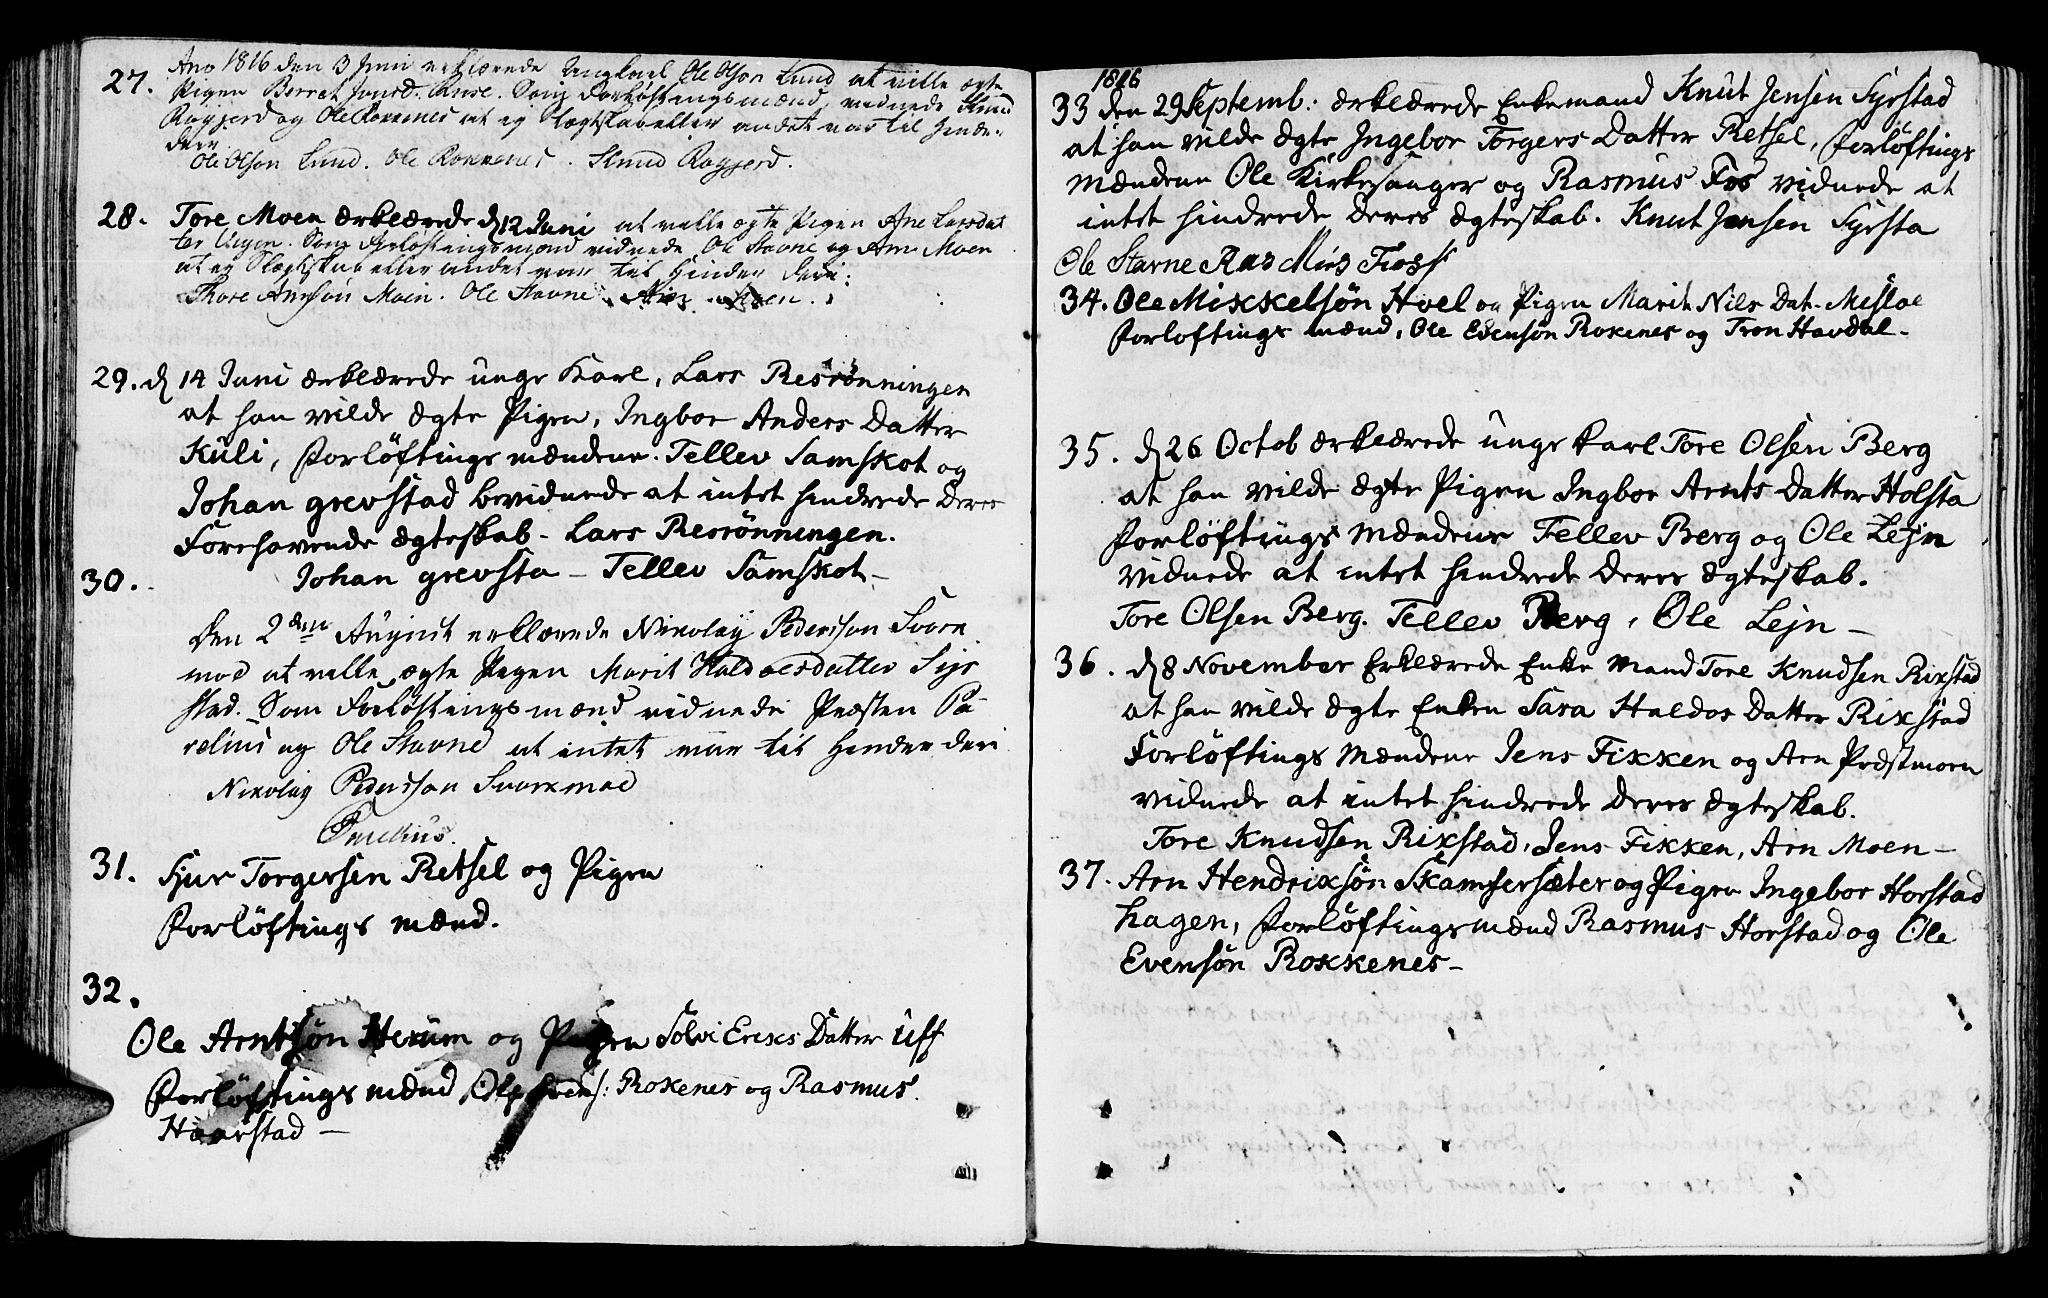 27. Ano 1816 den 3 Juni erklærede Ungkarl Ole Olson Lund at ville ægte
Pigen Berret Jonsd. Ruse. Som Forløftningsmænd, vidnede Knud
Rogjerd og Ole Rokkenes at ej Slægtskab eller andet var til Hinder
deri.
Ole Olson Lund. Ole Rokkenes. Knud Rogjerd.
28. Tore Moen ærklærede d 12 Juni at ville ægte Pigen Ane Larsdat
ter Uigen. Som Forløftningsmænd vidnede Ole Stavne og Arn Moen
at ej Slægtskab eller andet var til Hinder deri.
Thore Arnson Moen. Ole Stavne. Moen.
29. d 14 Juni ærklærede unge Karl, Lars Resrønningen
at han vilde ægte Pigen, Ingbor Anders Datter
Kúli, Forløftings mændene. Tellev Samskot og
Johan grevstad bevidnede at intet hindrede Deres
Forehavende ægteskab - Lars Resrønningen.
Johan grevsta - Tellev Samskot -
30.
Den 2den August erklærede Nikolay Pederson Svork
moe at ville ægte Pigen Marit Haldoersdatter Syr
stad. Som Forløftningsmænd vidnede Præsten Pa
relius og Ole Stavne at intet var til Hinder deri
Nikolay Pederson Svorkmoe
Parelius.
31. Sjur Torgersen Retsel og Pigen
Forløftings mænd.
32.
Ole Arntsøn Herum og Pigen Solvi Erixs Datter Uff
Forløftings mænd Ole Evens: Rokenes og Rasmus
Haarstad -
1816
33 den 29 Septemb: ærklærede Enkemand Knut Jensen Syrstad
at han vilde ægte Ingebor Torgers Datter Retsel, Forløftings
Mændene Ole Kirkesanger og Rasmus Fos vidnede at
intet hindrede deres ægteskab. Knut Jensen Syrsta
Ole Stavne Rasmus Foss
34. Ole Mikkelsøn Hoel og Pigen Marit Nils Dat. Mesloe
Forloftings mænd, Ole Evensøn Rokenes og Tron Havdal -
35. d 26 Octob ærklærede unge karl Tore Olsen Berg
at han vilde ægte Pigen Ingbor Arnts Datter Holsta
Forløftings Mændene Tellev Berg og Ole Lejn
vidnede at intet hindrede deres ægteskab.
Tore Olsen Berg. Tellev Berg, Ole Lejn -
36. d 8 November Erklærede Enke Mand Tore Knudsen Rixstad
at han vilde ægte Enken Sara Haldos Datter Rixstad
Forløftings Mændene Jens Fikken og Arn Præstmoen
vidnede at intet hindrede deres ægteskab.
Tore Knudsen Rixstad, Jens Fikken, Arn Moen -
37. Arn Hendrixsøn Skamfersæter og Pigen Ingebor Horstad
hagen, Forløftingsmænd Rasmus Horstad og Ole
Evensøn Rokkenes -